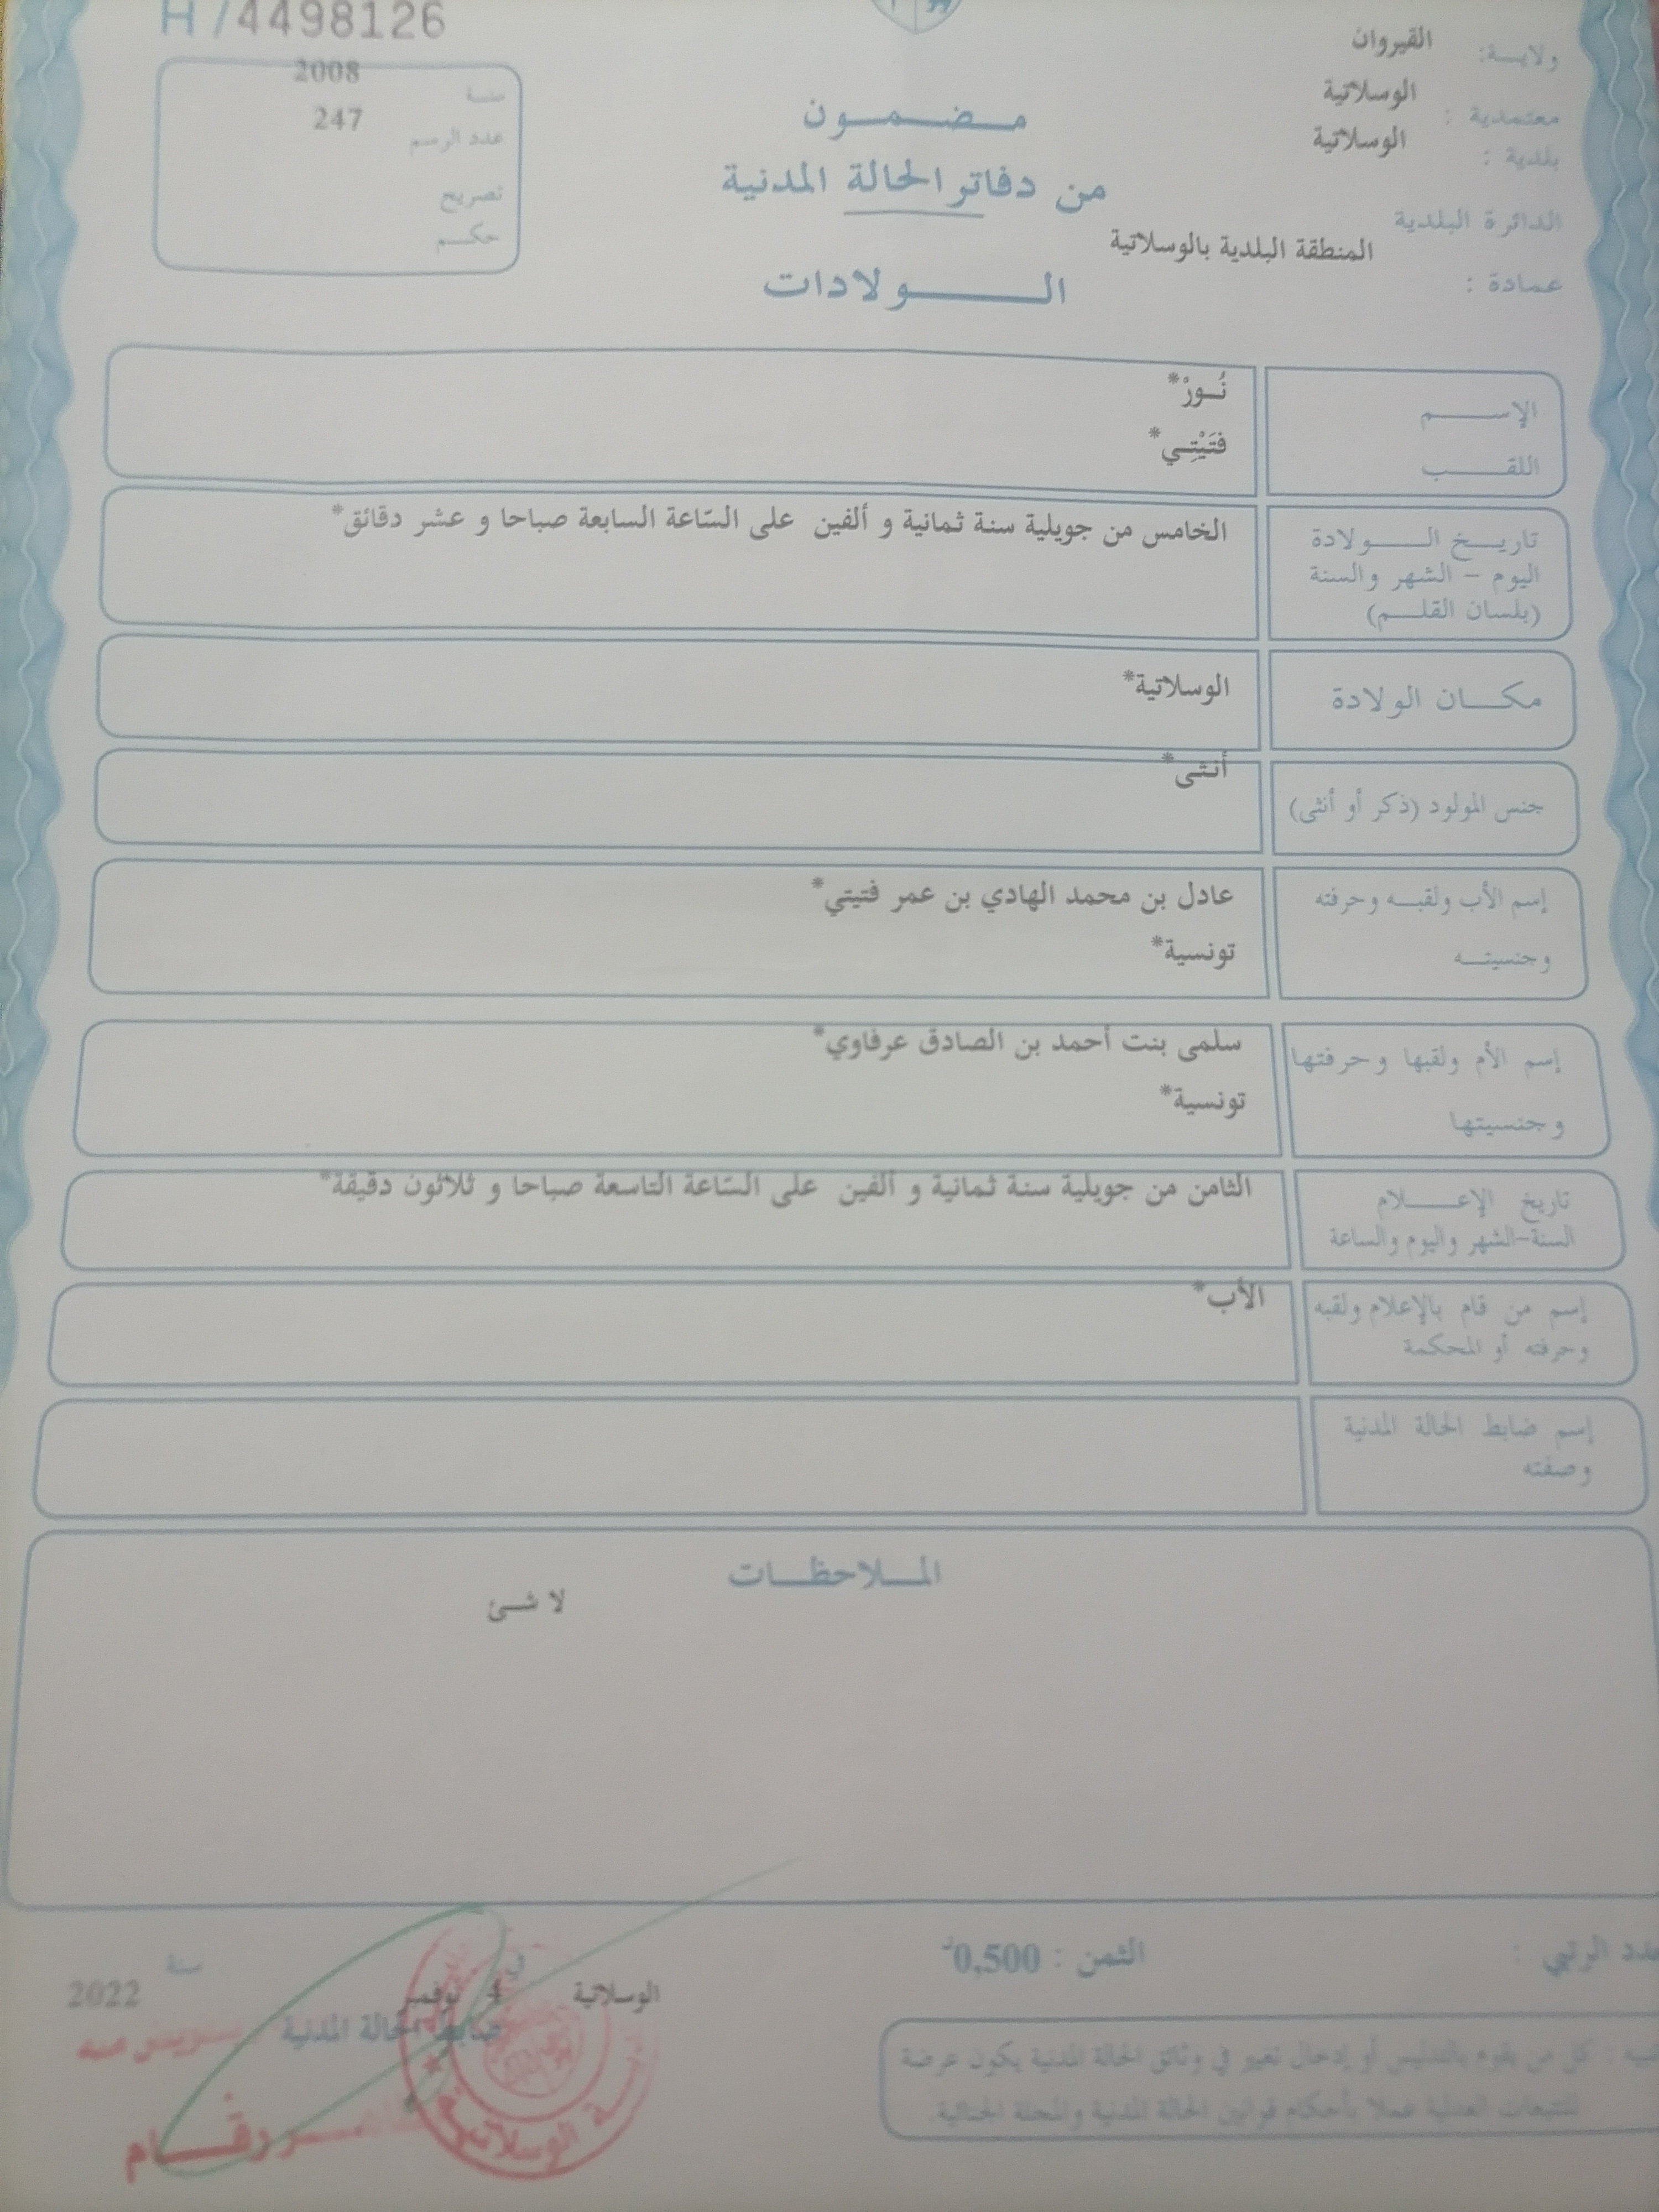 H / 4498126
ولايــة: القيروان
معتمدية : الوسلاتية
بلدية : الوسلاتية
الدائرة البلدية
المنطقة البلدية بالوسلاتية
عمادة :
سنة 2008
عدد الرسم 247
تصريح
حكـم
مـضـمـون
من دفاتر الحالة المدنية
الـولادات
الإسـم نُـورْ*
اللقـب فتَيْتِـي*
تاريـخ الـولادة الخامس من جويلية سنة ثمانية و ألفين على السّاعة السابعة صباحا و عشر دقائق*
اليوم – الشهر والسنة
(بلسان القلـم)
مكـان الولادة الوسلاتية*
جنس المولود (ذكر أو أنثى) أنـثى*
إسم الأب ولقبـه وحرفته عادل بن محمد الهادي بن عمر فتيتي*
وجنسيتـه تونسية*
إسم الأم ولقبها وحرفتها سلمى بنت أحمد بن الصادق عرفاوي*
وجنسيتها تونسية*
تاريخ الإعـلام الثامن من جويلية سنة ثمانية و ألفين على السّاعة التاسعة صباحا و ثلاثون دقيقة*
السنة-الشهر واليوم والساعة
إسم من قام بالإعلام ولقبه الأب*
وحرفته أو المحكمة
إسم ضابط الحالة المدنية
وصفته
المـلاحظـات
لا شـئ
دد الرتبي :
الثمن : 0,500د
الوسلاتية في 4 نوفمبر سنة 2022
ضابط الحالة المدنية
بتفويض منه
دقـام
الوسلاتية
كل من يقوم بالتدليس أو إدخال تغيير في وثائق الحالة المدنية يكون عرضة
للتتبعات العدلية عملا بأحكام قوانين الحالة المدنية والمجلة الجنائية